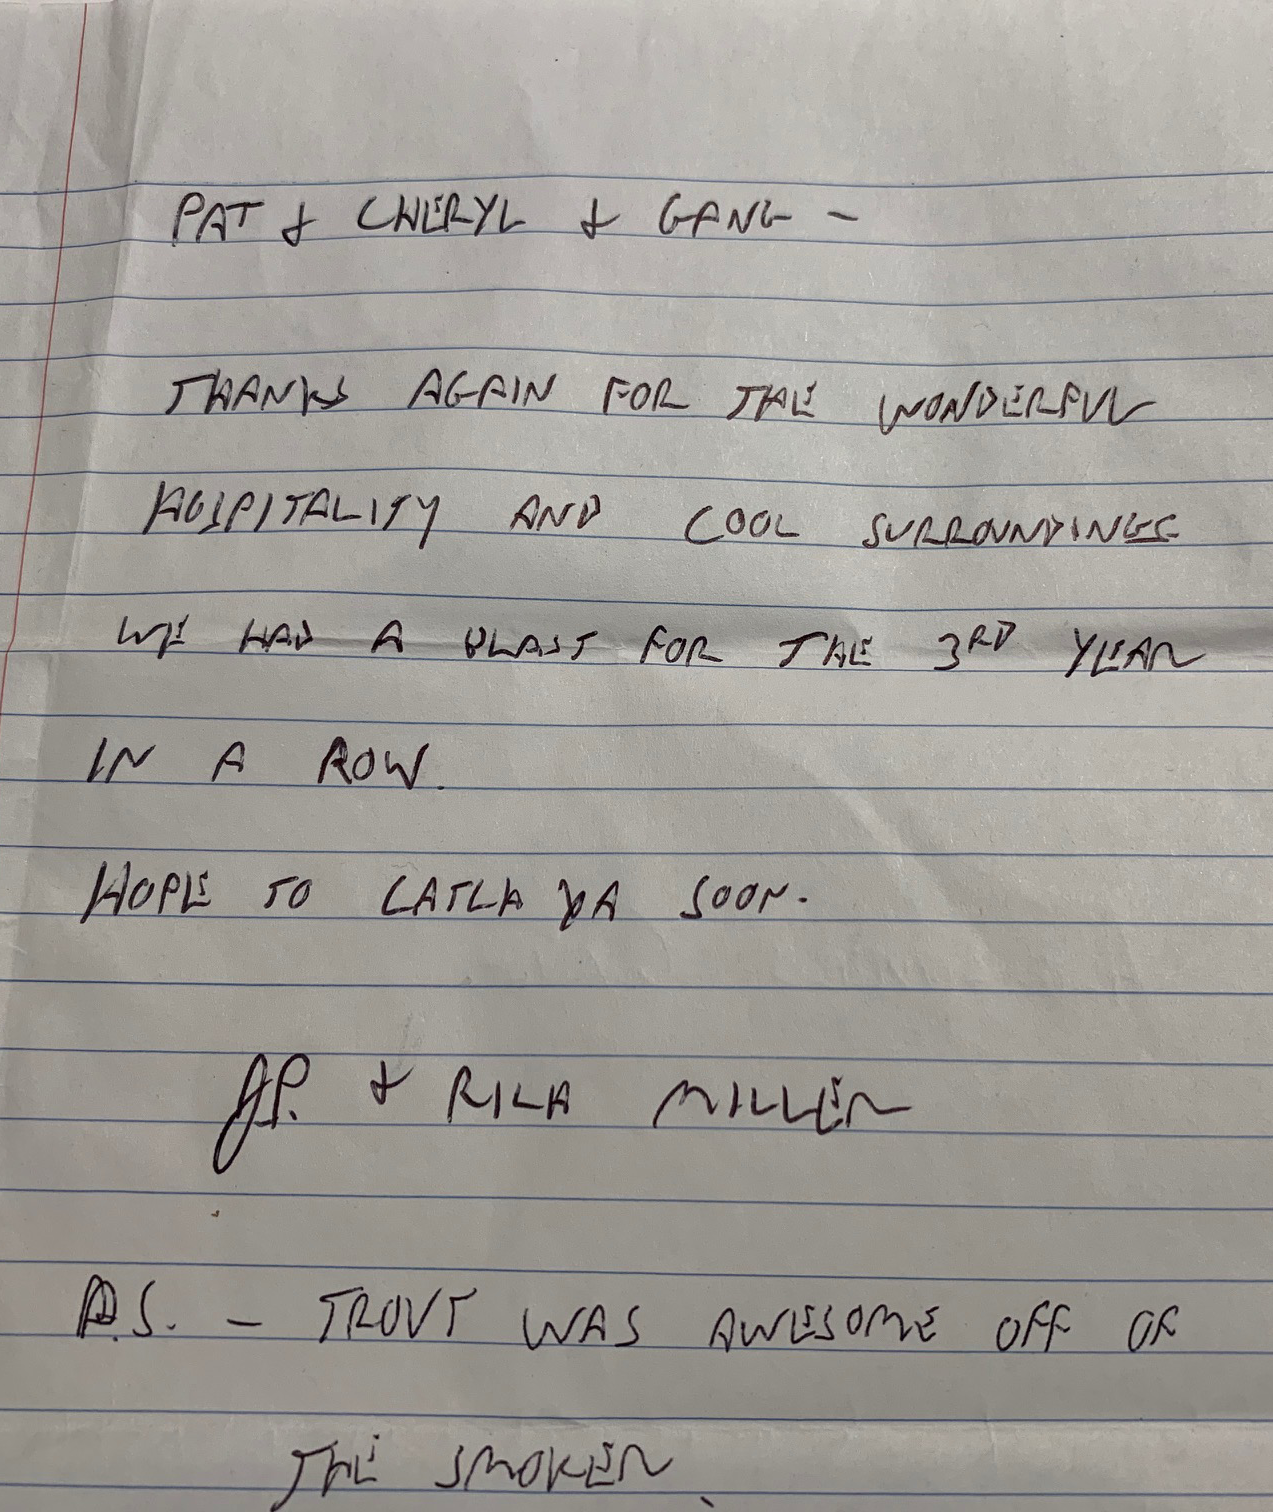 PAT & CHERYL & GANG -
THANKS AGAIN FOR THE WONDERFUL
HOSPITALITY AND COOL SURROUNDINGS
WE HAD A BLAST FOR THE 3RD YEAR
IN A ROW.
HOPE TO CATCH YA SOON.
J.P. & RICH MILLER
P.S. - TROUT WAS AWESOME OFF OF
THE SMOKER.